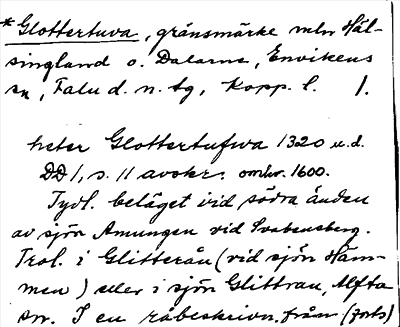 * Glottertuva, gränsmärke mln Häl-
singland o. Dalarne, Envikens
sn, Falu d. n. tg, Kopp. l. 1.
heter Glottertufwa 1320 u.d.
DD 1, s. 11 avskr. omkr. 1600.
Tydl. beläget vid södra änden
av sjön Amungen vid Svabensberg.
Trol. i Glitterån (vid sjön Häm-
men) eller i sjön Glittran, Alfta
sn. I en råbeskrivn. från (forts)